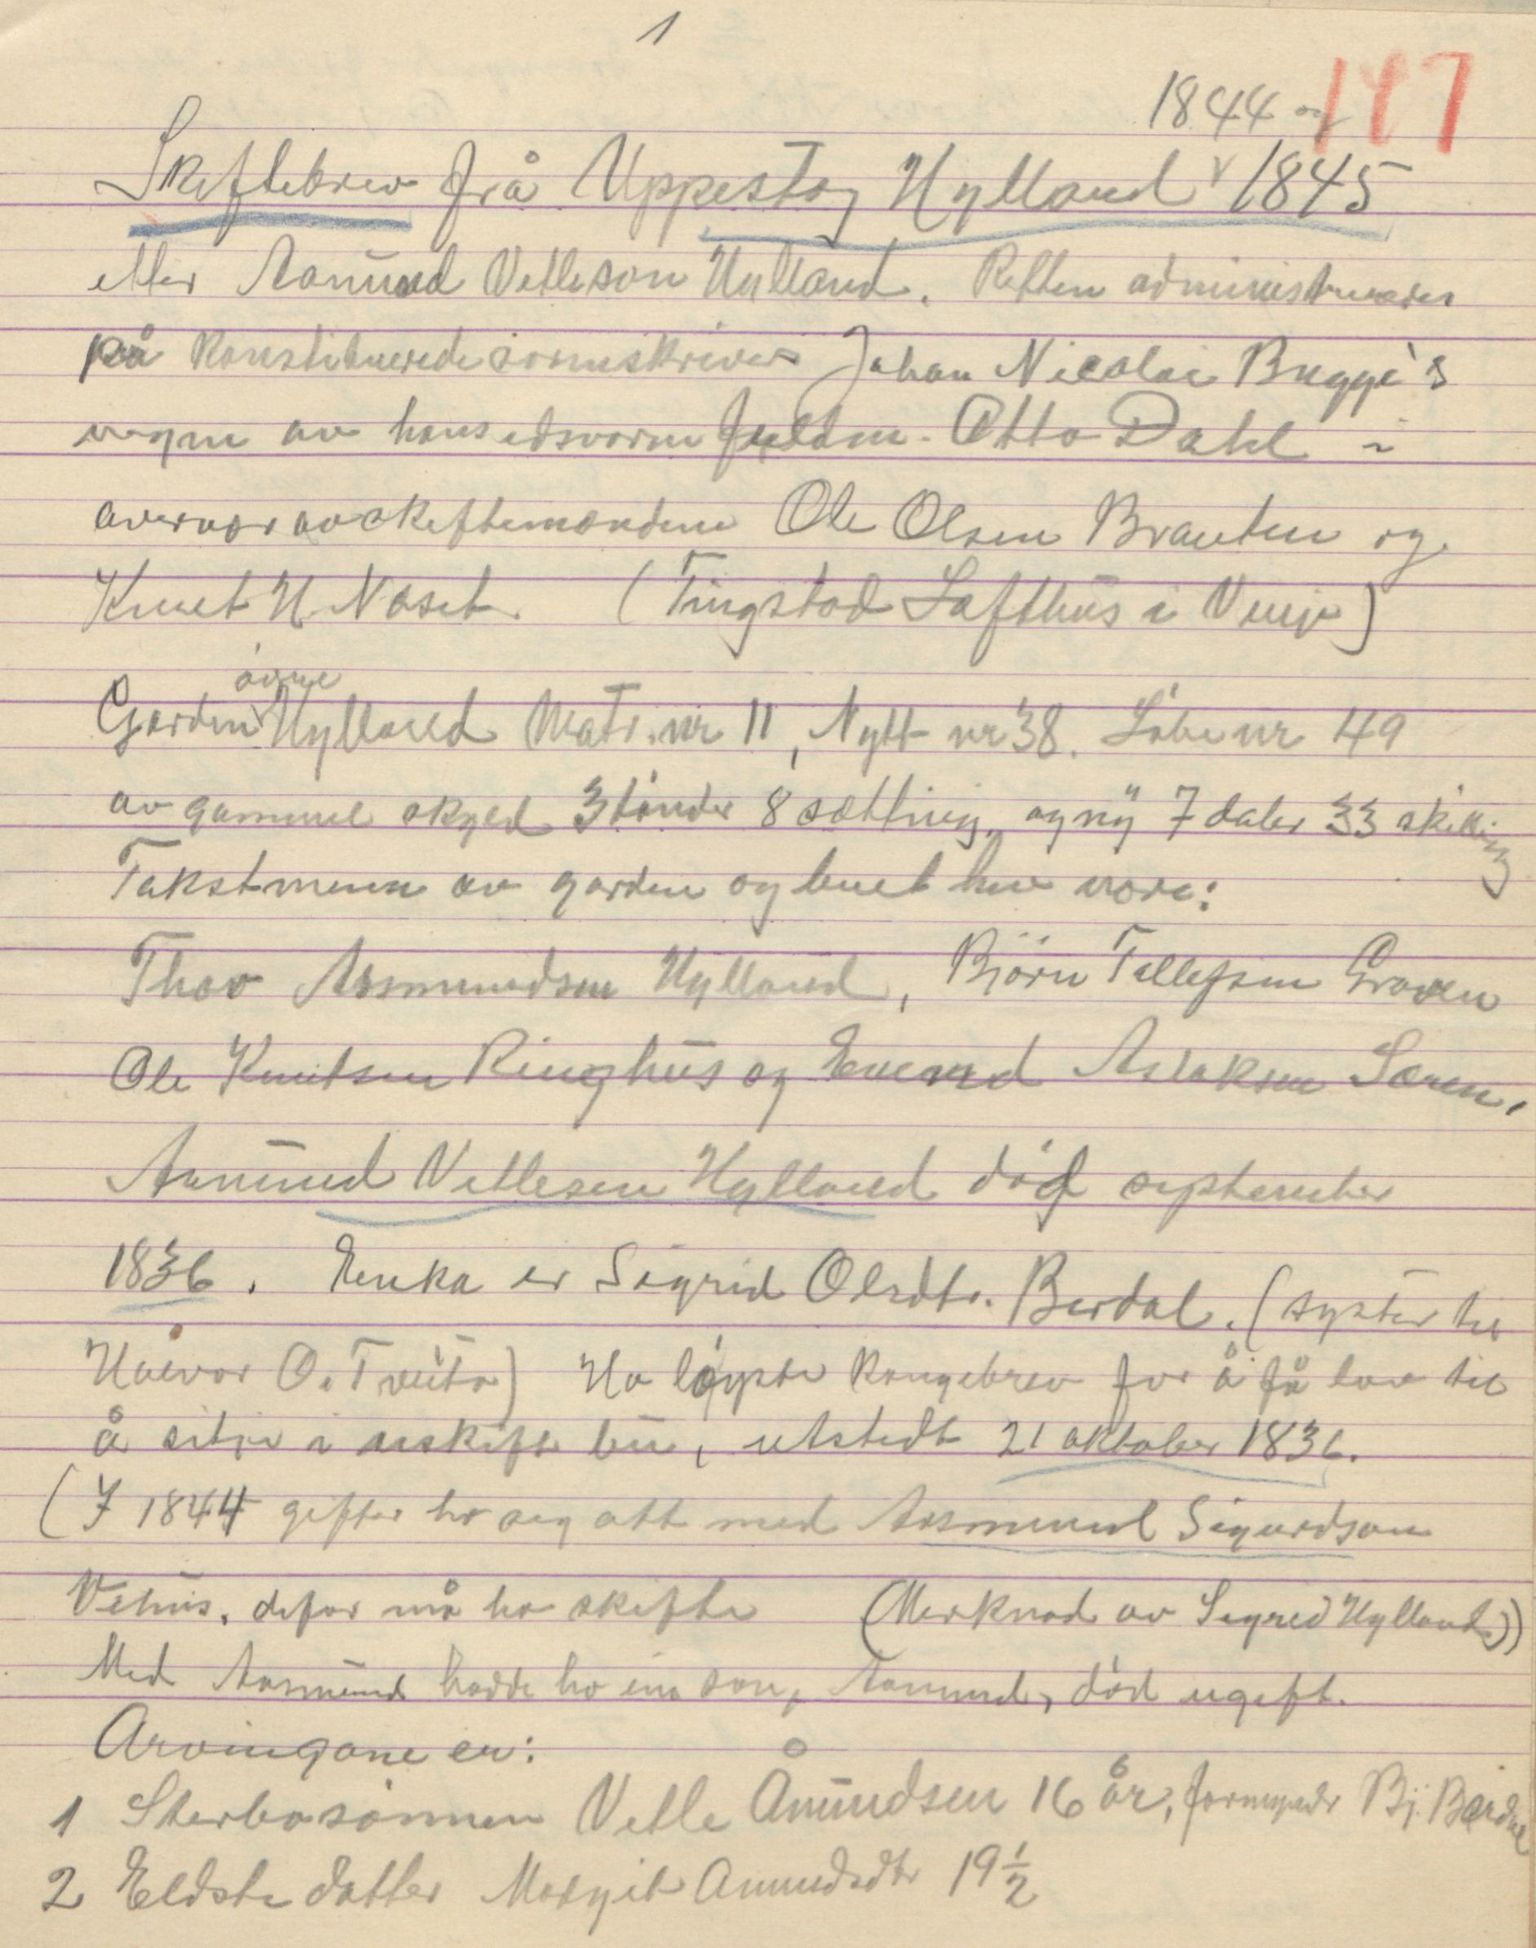 1
147
1844 og
Skiftebrev frå Uppestog Hylland 1845
etter Aamund Vetleson Hylland. Retten administreredes
på konstituerede sorenskriver Johan Nicolai Bugge's
vegne av hans edsvorne fuldm. Otto Dahl i
overvær av skiftemændene Ole Olsen Brauten og
Knut H. Naset. (Tingstad Lofthus i Vinje)
øvre
Garden Hylland Matr. nr 11, Nytt nr 38. Løbe nr 49
av gammel skyld 3 tønder 8 sætting og ny 7 daler 33 skilling
Takstmenn av garden og buet her være:
Thov Aasmundsen Hylland, Björn Tellefsen Graven
Ole Knutsen Ringhus og Eivind Aslaksen Særen,
Aamund Vetlesen Hylland död september
1836. Enka er Sigrid Olsdtr. Berdal. (syster til
Håvor O. Tveito) Ho löyste kongebrev for å få lov til
å sitje i uskift bu, utstedt 21 oktober 1836.
(I 1844 gifter ho seg att med Aasmund Sigurdson
Vehus. defor må ho skifte (Merknad av Sigrid Hylland))
Med Aasmund hadde ho ein son, Aamund, död ugift.
Arvingane er:
1 Sterbosönnen Vetle Åmundsen 16 år, formyndr Bj. Berdal
2 Eldste datter Margit Amundsdtr 19 1/2